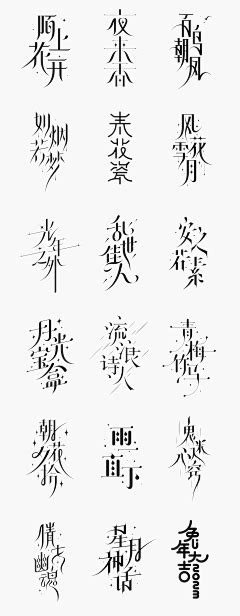 陌上花开
夜来香
百鸟朝凤
妙若烟梦
青花瓷
风花雪月
光年之外
乱世佳人
安之若素
月光宝盒
流浪诗人
青梅竹子
朝花夕拾
雨一直下
鬼迷心窍
倩女幽魂
星月神话
兔年大吉